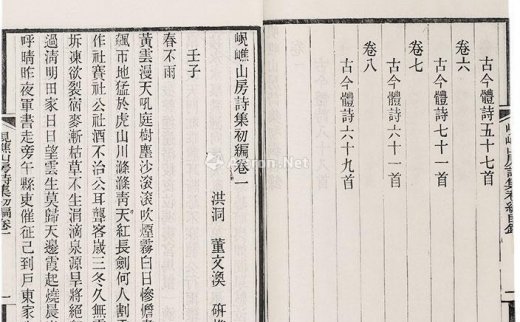 古今體詩五十七首
卷六
古今體詩七十一首
卷七
古今體詩六十一首
卷八
古今體詩六十九首
峴嶕山房詩集初編目錄
峴嶕山房詩集初編卷一
洪洞 董文渙 研樵
壬子
春不雨
黃雲漫天吼庭樹塵沙滾滾吹煙霧白日慘澹
飆市地猛於虎山川滌滌靑天紅長劍何人割
作社賽社公社酒不治公耳聾客歲三冬久無
坼凍欲裂宿麥漸枯草不生涓滴泉源旱將絕
過淸明田家日日望雲生莫歸天邊霞起燒晨
呼晴昨夜軍書走旁午縣吏催征己到戸東家
峴嶕山房詩集初編卷一
一